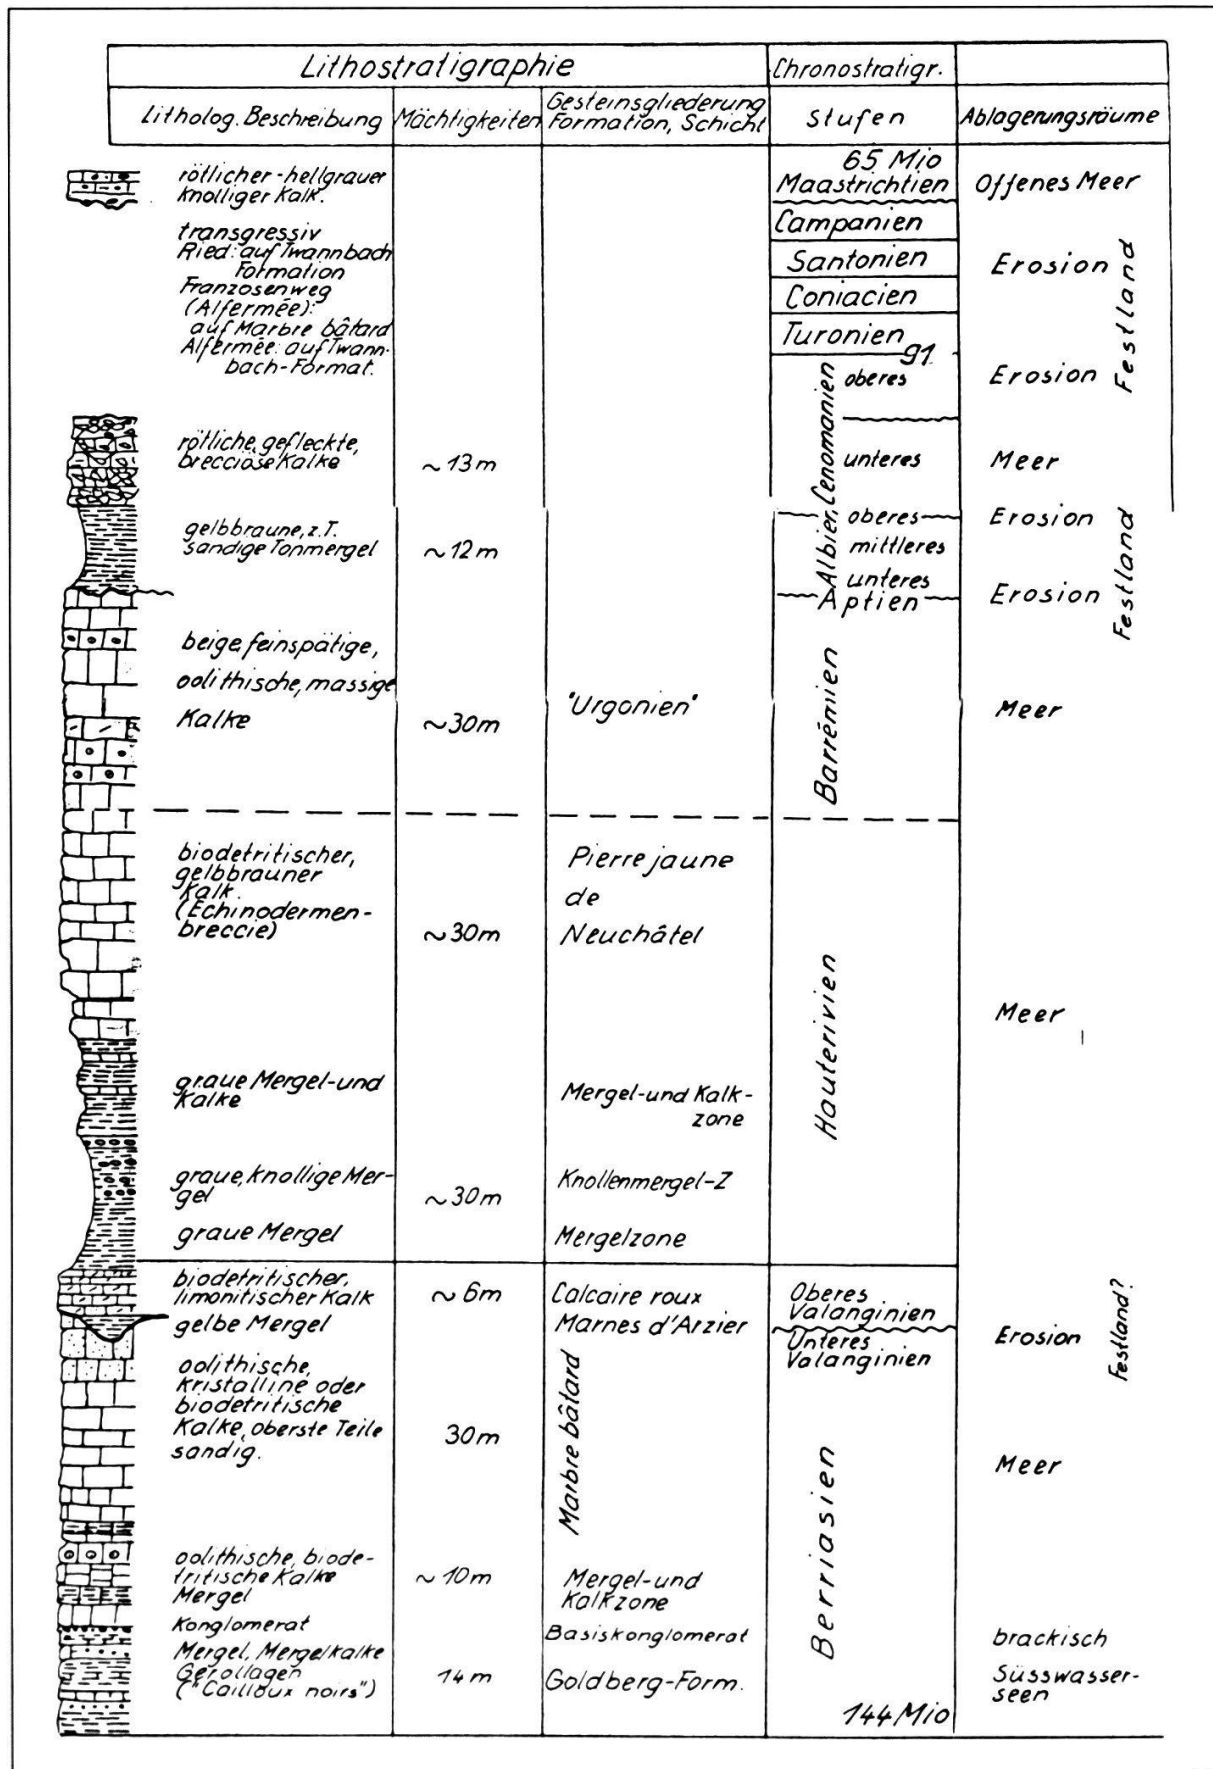 Lithostratigraphie
Chronostratigr.
Litholog. Beschreibung
Mächtigkeiten
Gesteinsgliederung
Formation, Schicht
Stufen
Ablagerungsräume
rötlicher-hellgrauer
knolliger Kalk.
65 Mio
Maastrichtien
Offenes Meer
transgressiv
Ried: auf Twannbach
Formation
Franzosenweg
(Alfermée):
auf Marbre bâtard
Alfermée: auf Twann-
bach-Format.
Campanien
Santonien
Coniacien
Turonien
91
Erosion
Festland
oberes
Erosion
Albier, Cenomanien
rötliche, gefleckte,
brecciöse Kalke
~13m
unteres
Meer
gelbbraune, z.T.
sandige Tonmergel
~12m
oberes
mittleres
unteres
Aptien
Erosion
Erosion
Festland
beige feinspätige,
oolithische, massige
Kalke
~30m
"Urgonien"
Barrémien
Meer
biodetritischer,
gelbbrauner
Kalk.
(Echinodermen-
breccie)
~30m
Pierre jaune
de
Neuchâtel
Hauterivien
Meer
graue Mergel-und
Kalke
Mergel-und Kalk-
zone
graue, knollige Mer-
gel
~30m
Knollenmergel-Z
graue Mergel
Mergelzone
biodetritischer,
limonitischer Kalk
~6m
Calcaire roux
Oberes
Valanginien
gelbe Mergel
Marnes d'Arzier
Unteres
Valanginien
Erosion
Festland?
oolithische,
kristalline oder
biodetritische
Kalke, oberste Teile
sandig.
30m
Marbre bâtard
Berriasien
Meer
oolithische, biode-
tritische Kalke
Mergel
~10m
Mergel-und
Kalkzone
Konglomerat
Basiskonglomerat
brackisch
Mergel, Mergelkalke
Geröllagen
("Cailloux noirs")
14m
Goldberg-Form.
Süsswasser-
seen
144 Mio